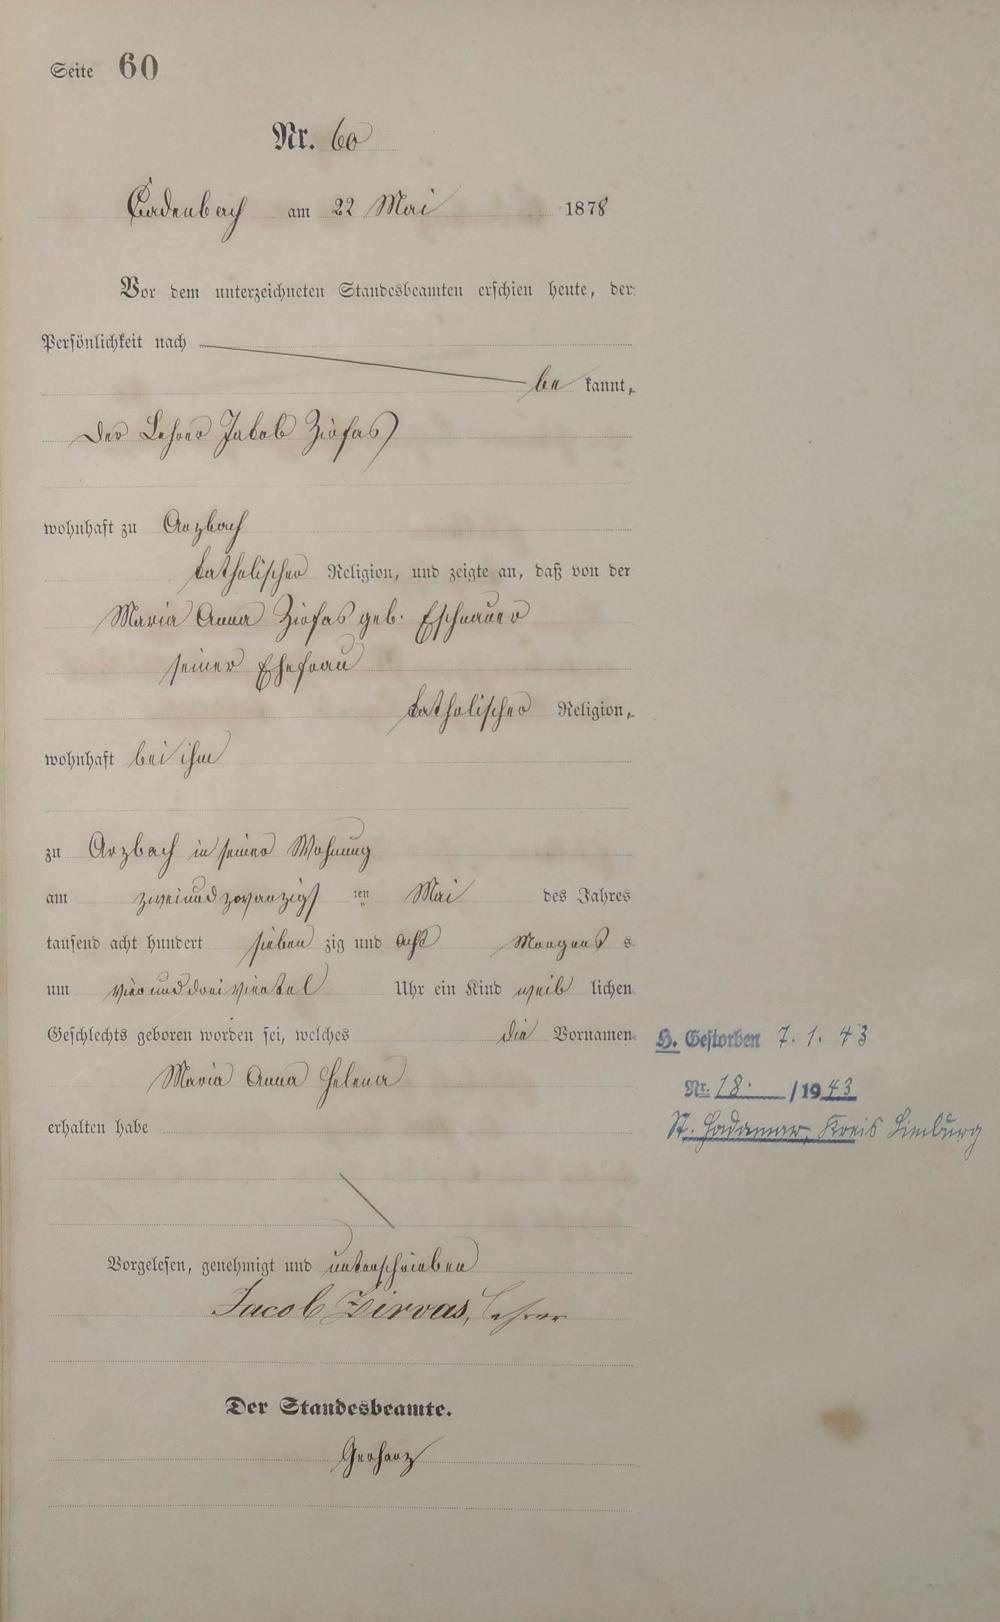 Seite 60
Nr. 60
Cadenbach am 22 Mai 1878
Vor dem unterzeichneten Standesbeamten erschien heute, der
Persönlichkeit nach
be kannt,
der Lehrer Jakob Zirfas
wohnhaft zu Arzbach
katholischer Religion, und zeigte an, daß von der
Maria Anna Zirfas geb. Eschnauer
seiner Ehefrau
katholischer Religion,
wohnhaft bei ihm
zu Arzbach in seiner Wohnung
am zweiundzwanzigs ten Mai des Jahres
tausend acht hundert sieben zig und acht Morgens s
um vier und drei viertel Uhr ein Kind weib lichen
Geschlechts geboren worden sei, welches die Vornamen
Maria Anna Helena
erhalten habe
Vorgelesen, genehmigt und unterschrieben
Jacob Zirvas, Lehrer
Der Standesbeamte.
Gerharz
H. Gestorben 7. 1. 43
Nr. 18. /1943
St. Hadamar, Kreis Limburg